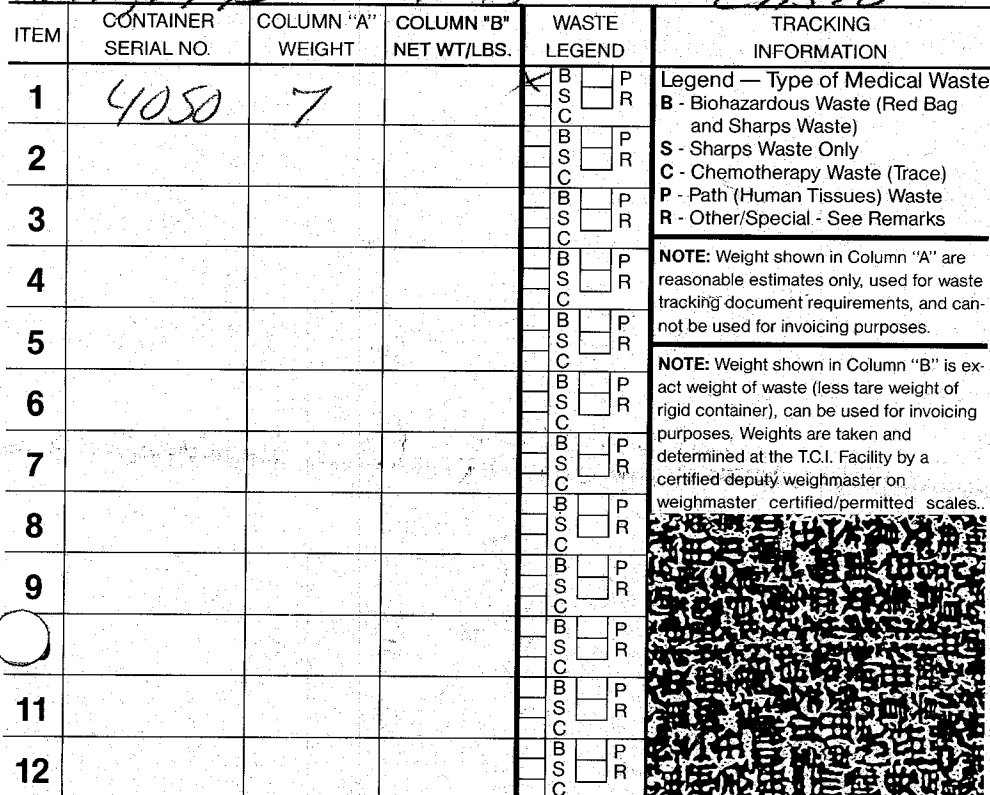 ITEM CONTAINER SERIAL NO. COLUMN "A" WEIGHT COLUMN "B" NET WT/LBS. WASTE LEGEND TRACKING INFORMATION
1 4050 7 X B S C P R
2 B S C P R
3 B S C P R
4 B S C P R
5 B S C P R
6 B S C P R
7 B S C P R
8 B S C P R
9 B S C P R
B S C P R
11 B S C P R
12 B S C P R
Legend — Type of Medical Waste
B - Biohazardous Waste (Red Bag
and Sharps Waste)
S - Sharps Waste Only
C - Chemotherapy Waste (Trace)
P - Path (Human Tissues) Waste
R - Other/Special - See Remarks
NOTE: Weight shown in Column "A" are
reasonable estimates only, used for waste
tracking document requirements, and can-
not be used for invoicing purposes.
NOTE: Weight shown in Column "B" is ex-
act weight of waste (less tare weight of
rigid container), can be used for invoicing
purposes. Weights are taken and
determined at the T.C.I. Facility by a
certified deputy weighmaster on
weighmaster certified/permitted scales..